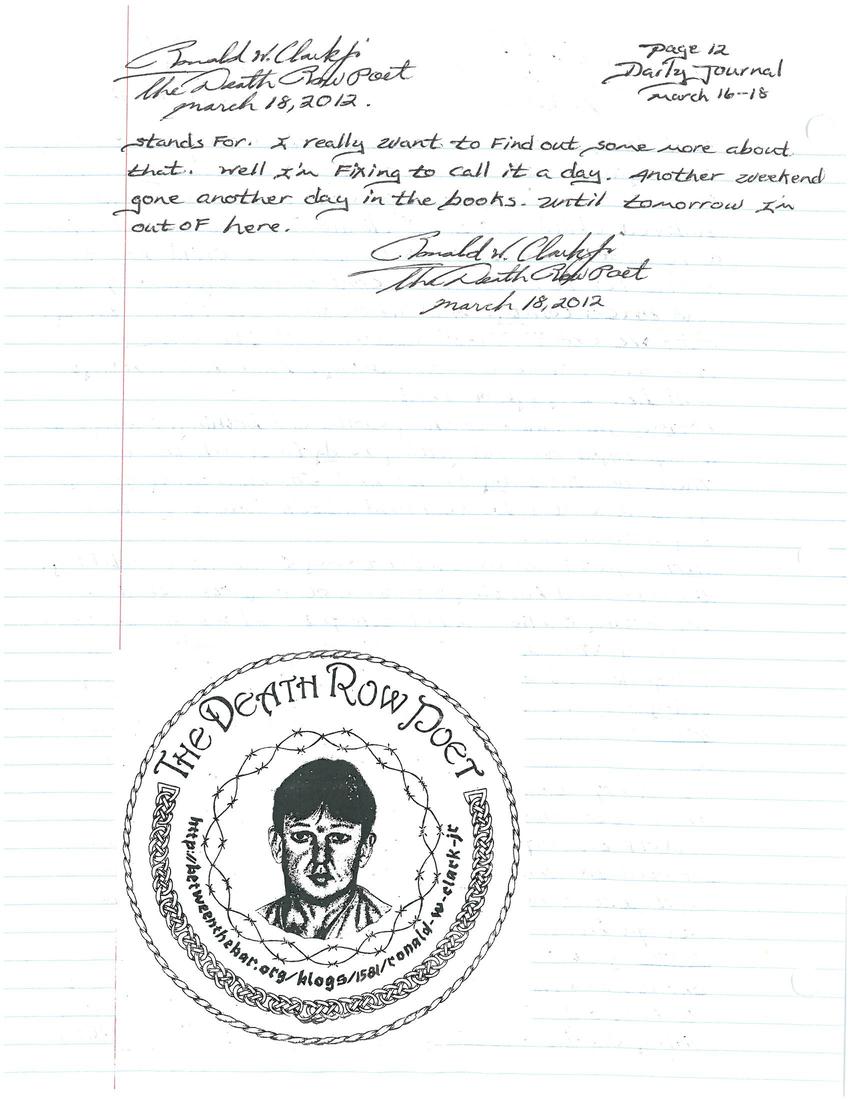 Ronald W. Clark Jr
The Death Row Poet
march 18, 2012.
page 12
Daily Journal
march 16--18
stands For. I really want to Find out some more about
that. Well I'm Fixing to call it a day. Another weekend
gone another day in the books. until tomorrow I'm
out oF here.
Ronald W. Clark Jr
The Death Row Poet
march 18, 2012
THE DEATH ROW POET
http://betweenthebar.org/blogs/1581/ronald-w-clark-jr